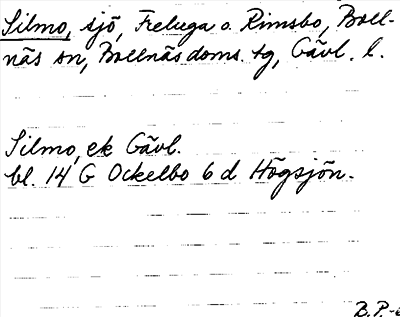 Silmo, sjö, Freluga o. Rimsbo, Boll-
näs sn, Bollnäs doms. tg, Gävl. l.
Silmo, ek Gävl.
bl. 14 G Ockelbo 6 d Högsjön.
B.P.-